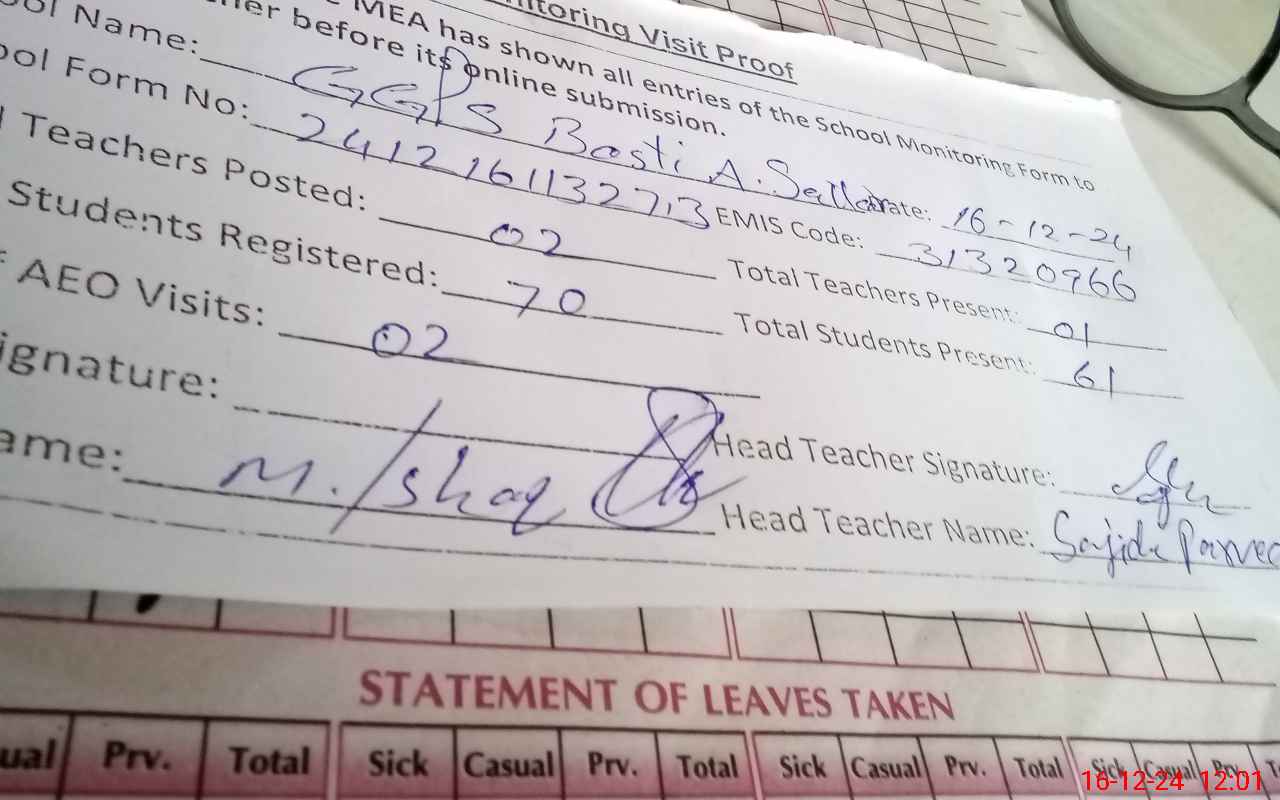 nitoring Visit Proof
MEA has shown all entries of the School Monitoring Form to
her before its online submission.
ool Name: GGPS Basti A. Sattar Date: 16-12-24
ool Form No: 2412161132713 EMIS Code: 31320966
l Teachers Posted: 02 Total Teachers Present: 01
Students Registered: 70 Total Students Present: 61
f AEO Visits: 02
ignature: Head Teacher Signature:
ame: M. Ishaq Head Teacher Name: Sajida Parvee
STATEMENT OF LEAVES TAKEN
ual Prv. Total Sick Casual Prv. Total Sick Casual Prv. Total Sick Casual Prv. T
16-12-24 12:01